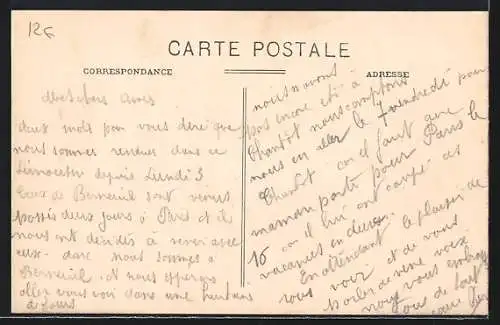 12€
CARTE POSTALE
CORRESPONDANCE
ADRESSE
chers amis
deux mots pour vous dire que
nous sommes rendues dans ce
depuis Lundi 3
de Berneuil sont venus
passés deux jours à Paris et il
nous ont décidés à avec
eux. donc nous sommes à
Berneuil. et nous espérons
aller vous voir dans une
de jours
nous n'avons
pas encore été à
Chantôt nous comptons
nous en aller le 7 vendredi pour
Chantôt car il faut que
maman parte pour Paris le
16 car il lui ont ces
vacances en deux.
En attendant le plaisir de
vous voir et de vous
parler de vive voix
nous vous
tous de tout